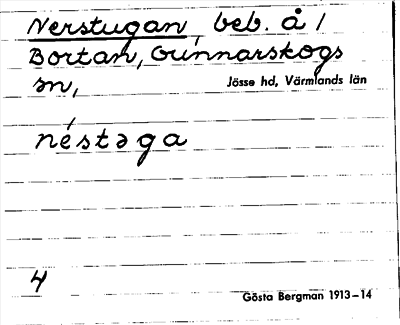 Nerstugan, beb. å /
Bortan, Gunnarskogs
sn,
Jösse hd, Värmlands län
néstəga
4
Gösta Bergman 1913–14